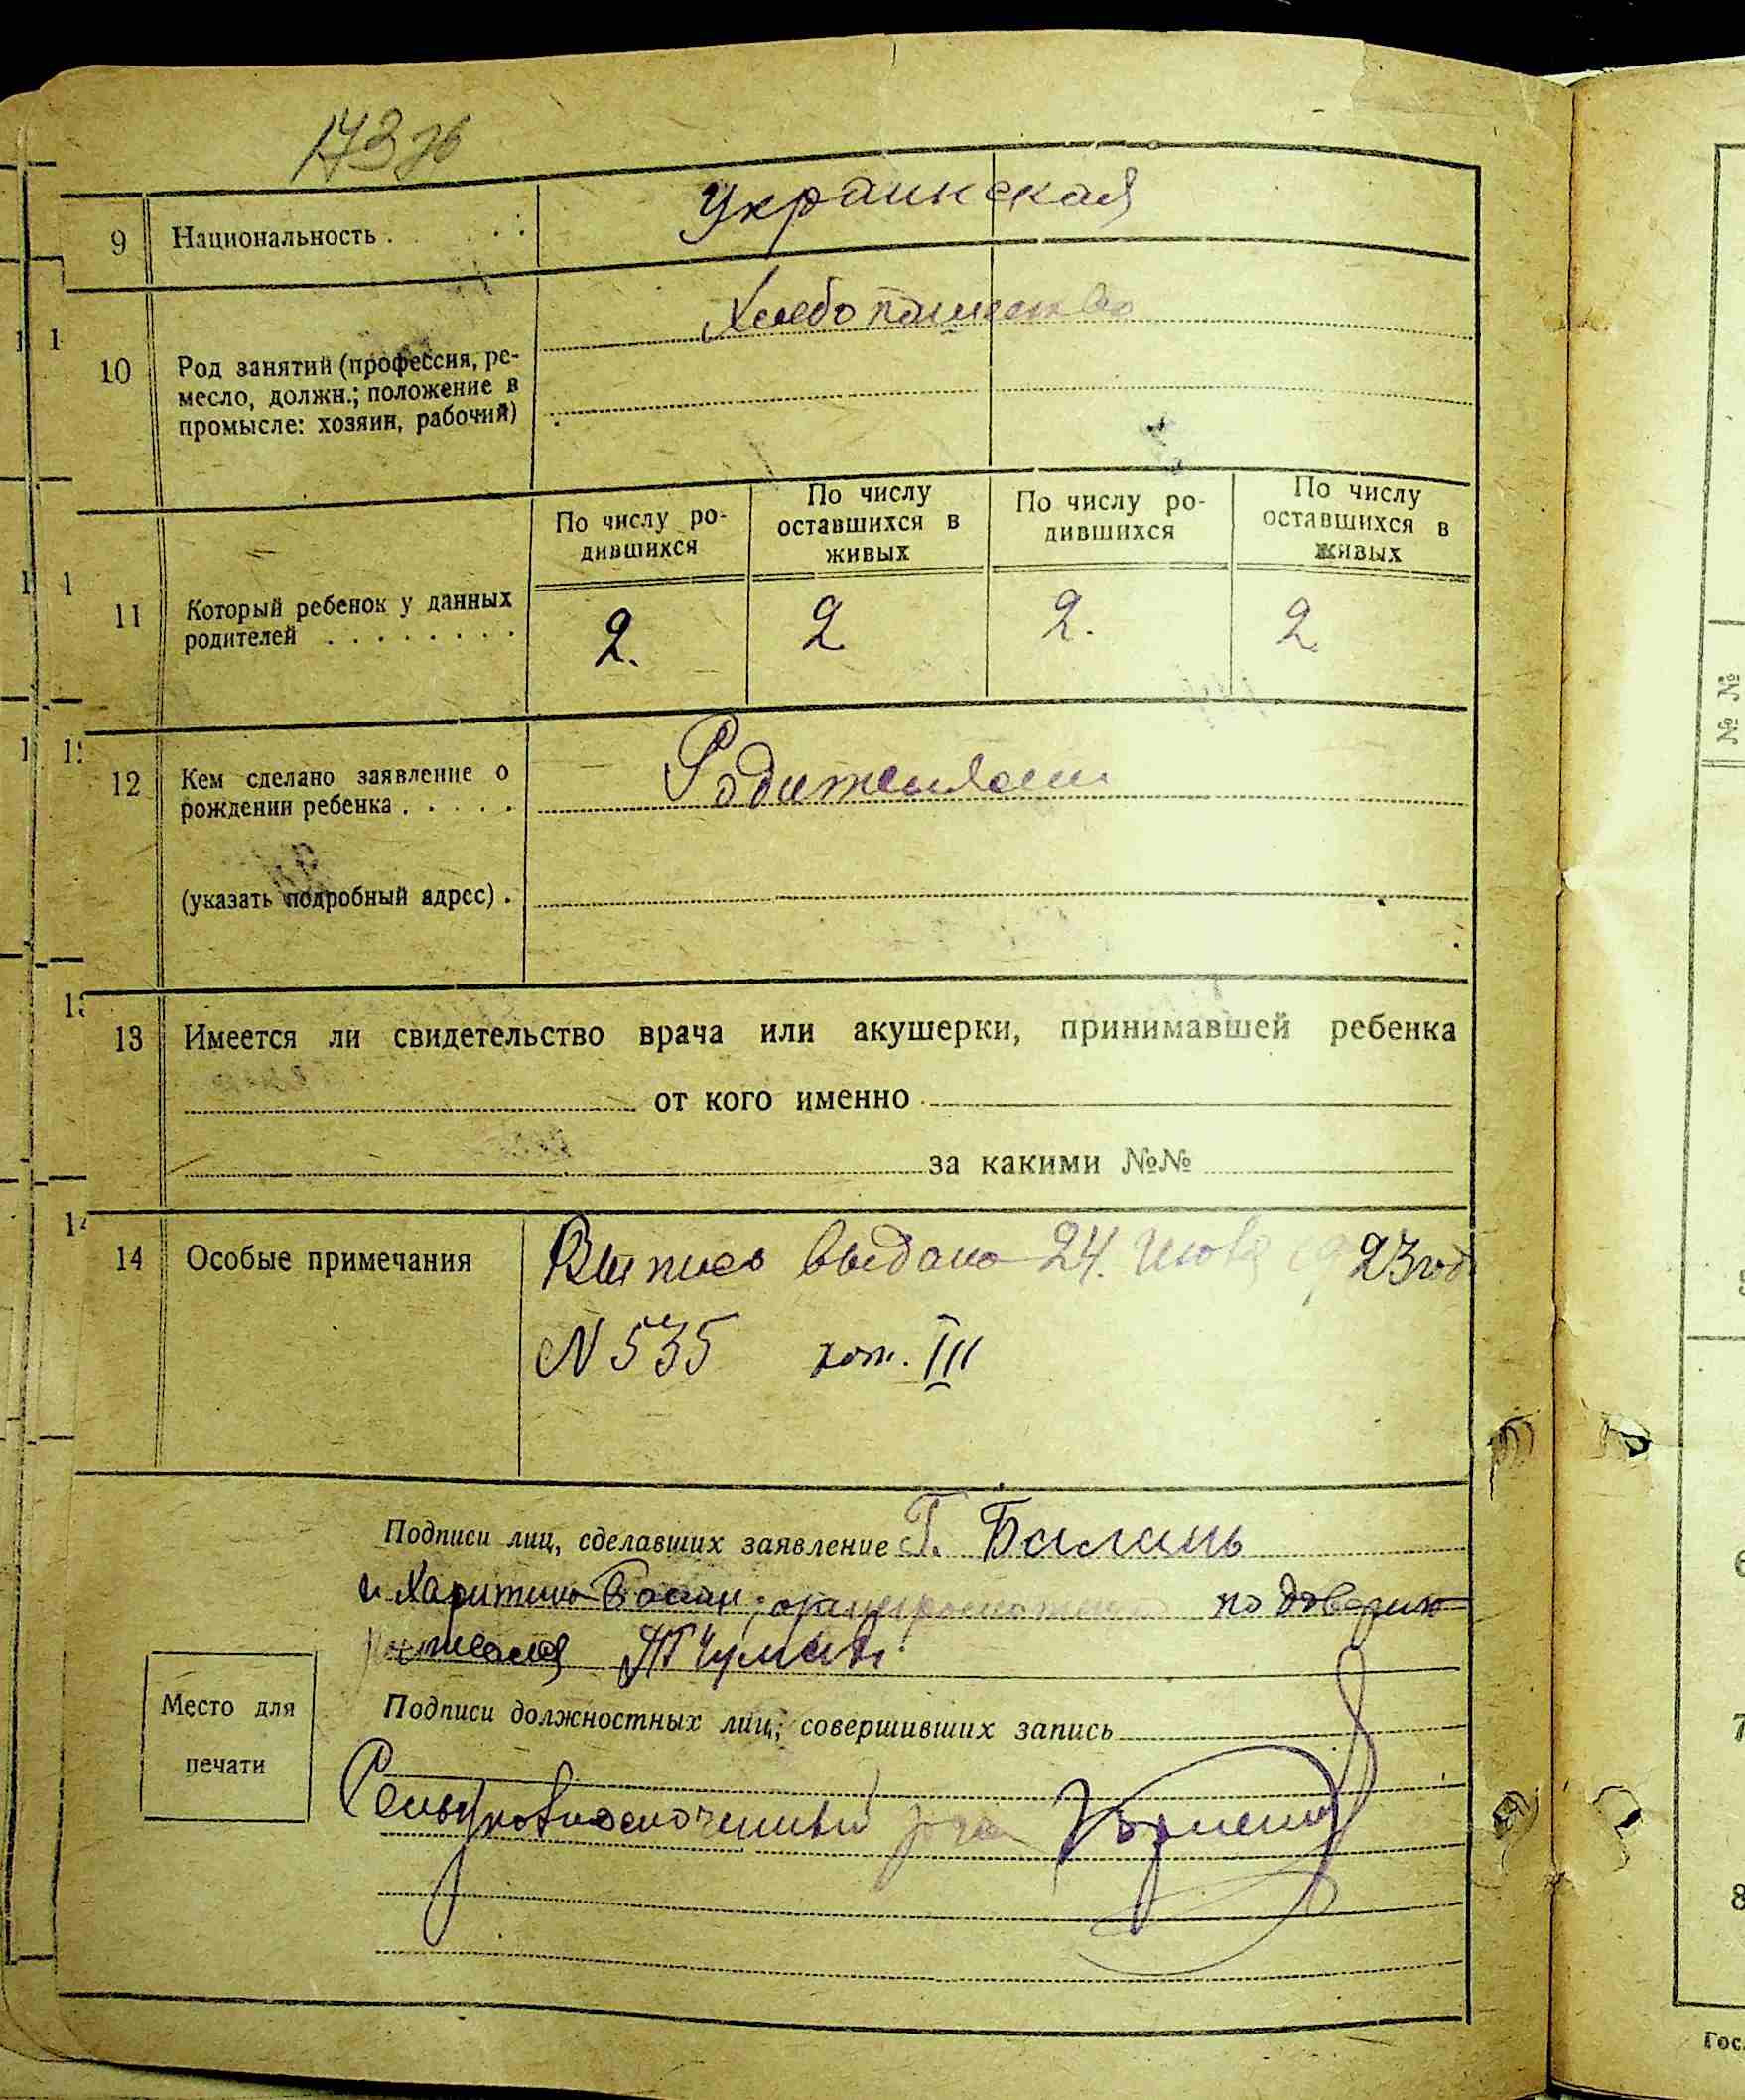 173
9 Национальность . . . . . Украинская
10 Род занятий (профессия, ре- Хлебопашество
месло, должн.; положение в
промысле: хозяин, рабочий)
По числу ро- По числу По числу ро- По числу
дившихся оставшихся в дившихся оставшихся в
живых живых
11 Который ребенок у данных
родителей . . . . . . . . 2. 2 2. 2
12 Кем сделано заявление о Родителями
рождении ребенка . . . . .
(указать подробный адрес) .
13 Имеется ли свидетельство врача или акушерки, принимавшей ребенка
от кого именно
за какими №№
14 Особые примечания Выпись выдана 24. 23 год
N 535 III
Подписи лиц, сделавших заявление Г. Балань
и Харитина по доверию
Место для
печати
Подписи должностных лиц, совершивших запись
№ №
6
7
8
Гос.